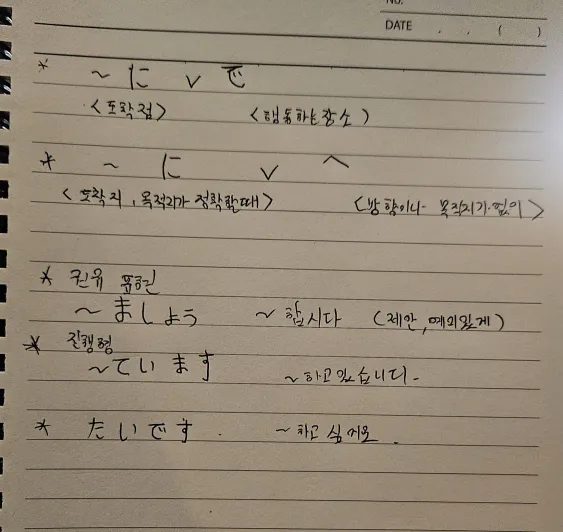 NO.
DATE . . ( )
* ~ に v で
<도착점> <행동하는 장소)
* ~ に v へ
<도착지, 목적지가 정확할때> <방향이나 목적지가 없이>
* 권유 표현
~ましょう ~합시다 (제안, 예의있게)
* 진행형
~ています ~하고있습니다.
* たいです. ~하고 싶어요.